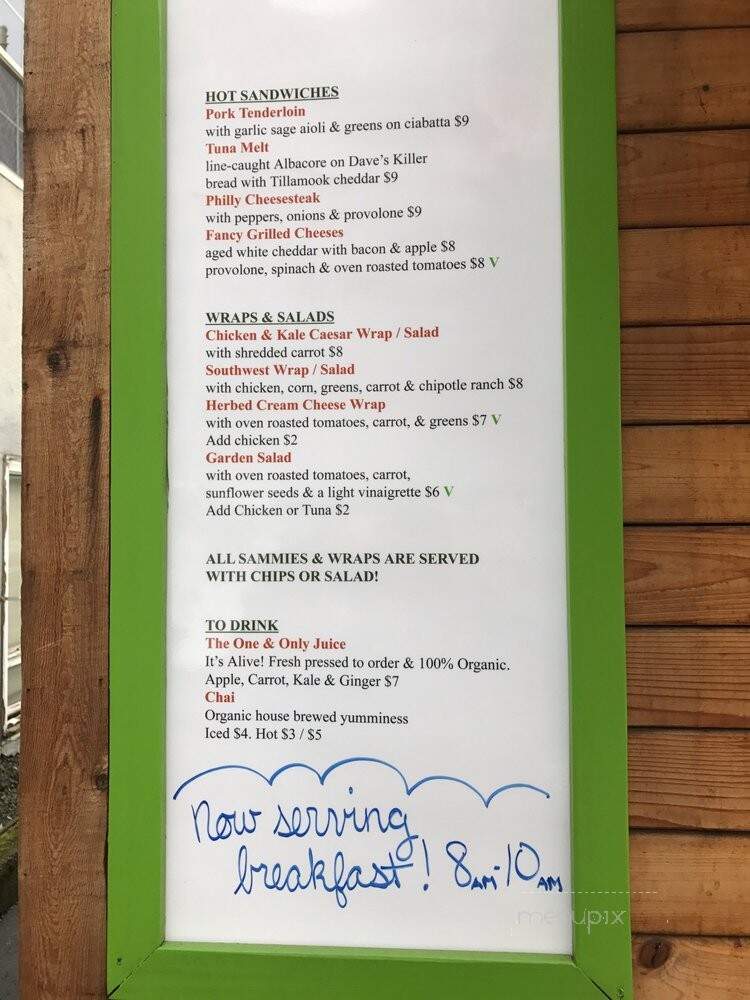 HOT SANDWICHES
Pork Tenderloin
with garlic sage aioli & greens on ciabatta $9
Tuna Melt
line-caught Albacore on Dave's Killer
bread with Tillamook cheddar $9
Philly Cheesesteak
with peppers, onions & provolone $9
Fancy Grilled Cheeses
aged white cheddar with bacon & apple $8
provolone, spinach & oven roasted tomatoes $8 V
WRAPS & SALADS
Chicken & Kale Caesar Wrap / Salad
with shredded carrot $8
Southwest Wrap / Salad
with chicken, corn, greens, carrot & chipotle ranch $8
Herbed Cream Cheese Wrap
with oven roasted tomatoes, carrot, & greens $7 V
Add chicken $2
Garden Salad
with oven roasted tomatoes, carrot,
sunflower seeds & a light vinaigrette $6 V
Add Chicken or Tuna $2
ALL SAMMIES & WRAPS ARE SERVED
WITH CHIPS OR SALAD!
TO DRINK
The One & Only Juice
It's Alive! Fresh pressed to order & 100% Organic.
Apple, Carrot, Kale & Ginger $7
Chai
Organic house brewed yumminess
Iced $4. Hot $3 / $5
Now serving
breakfast! 8AM-10AM
menupix